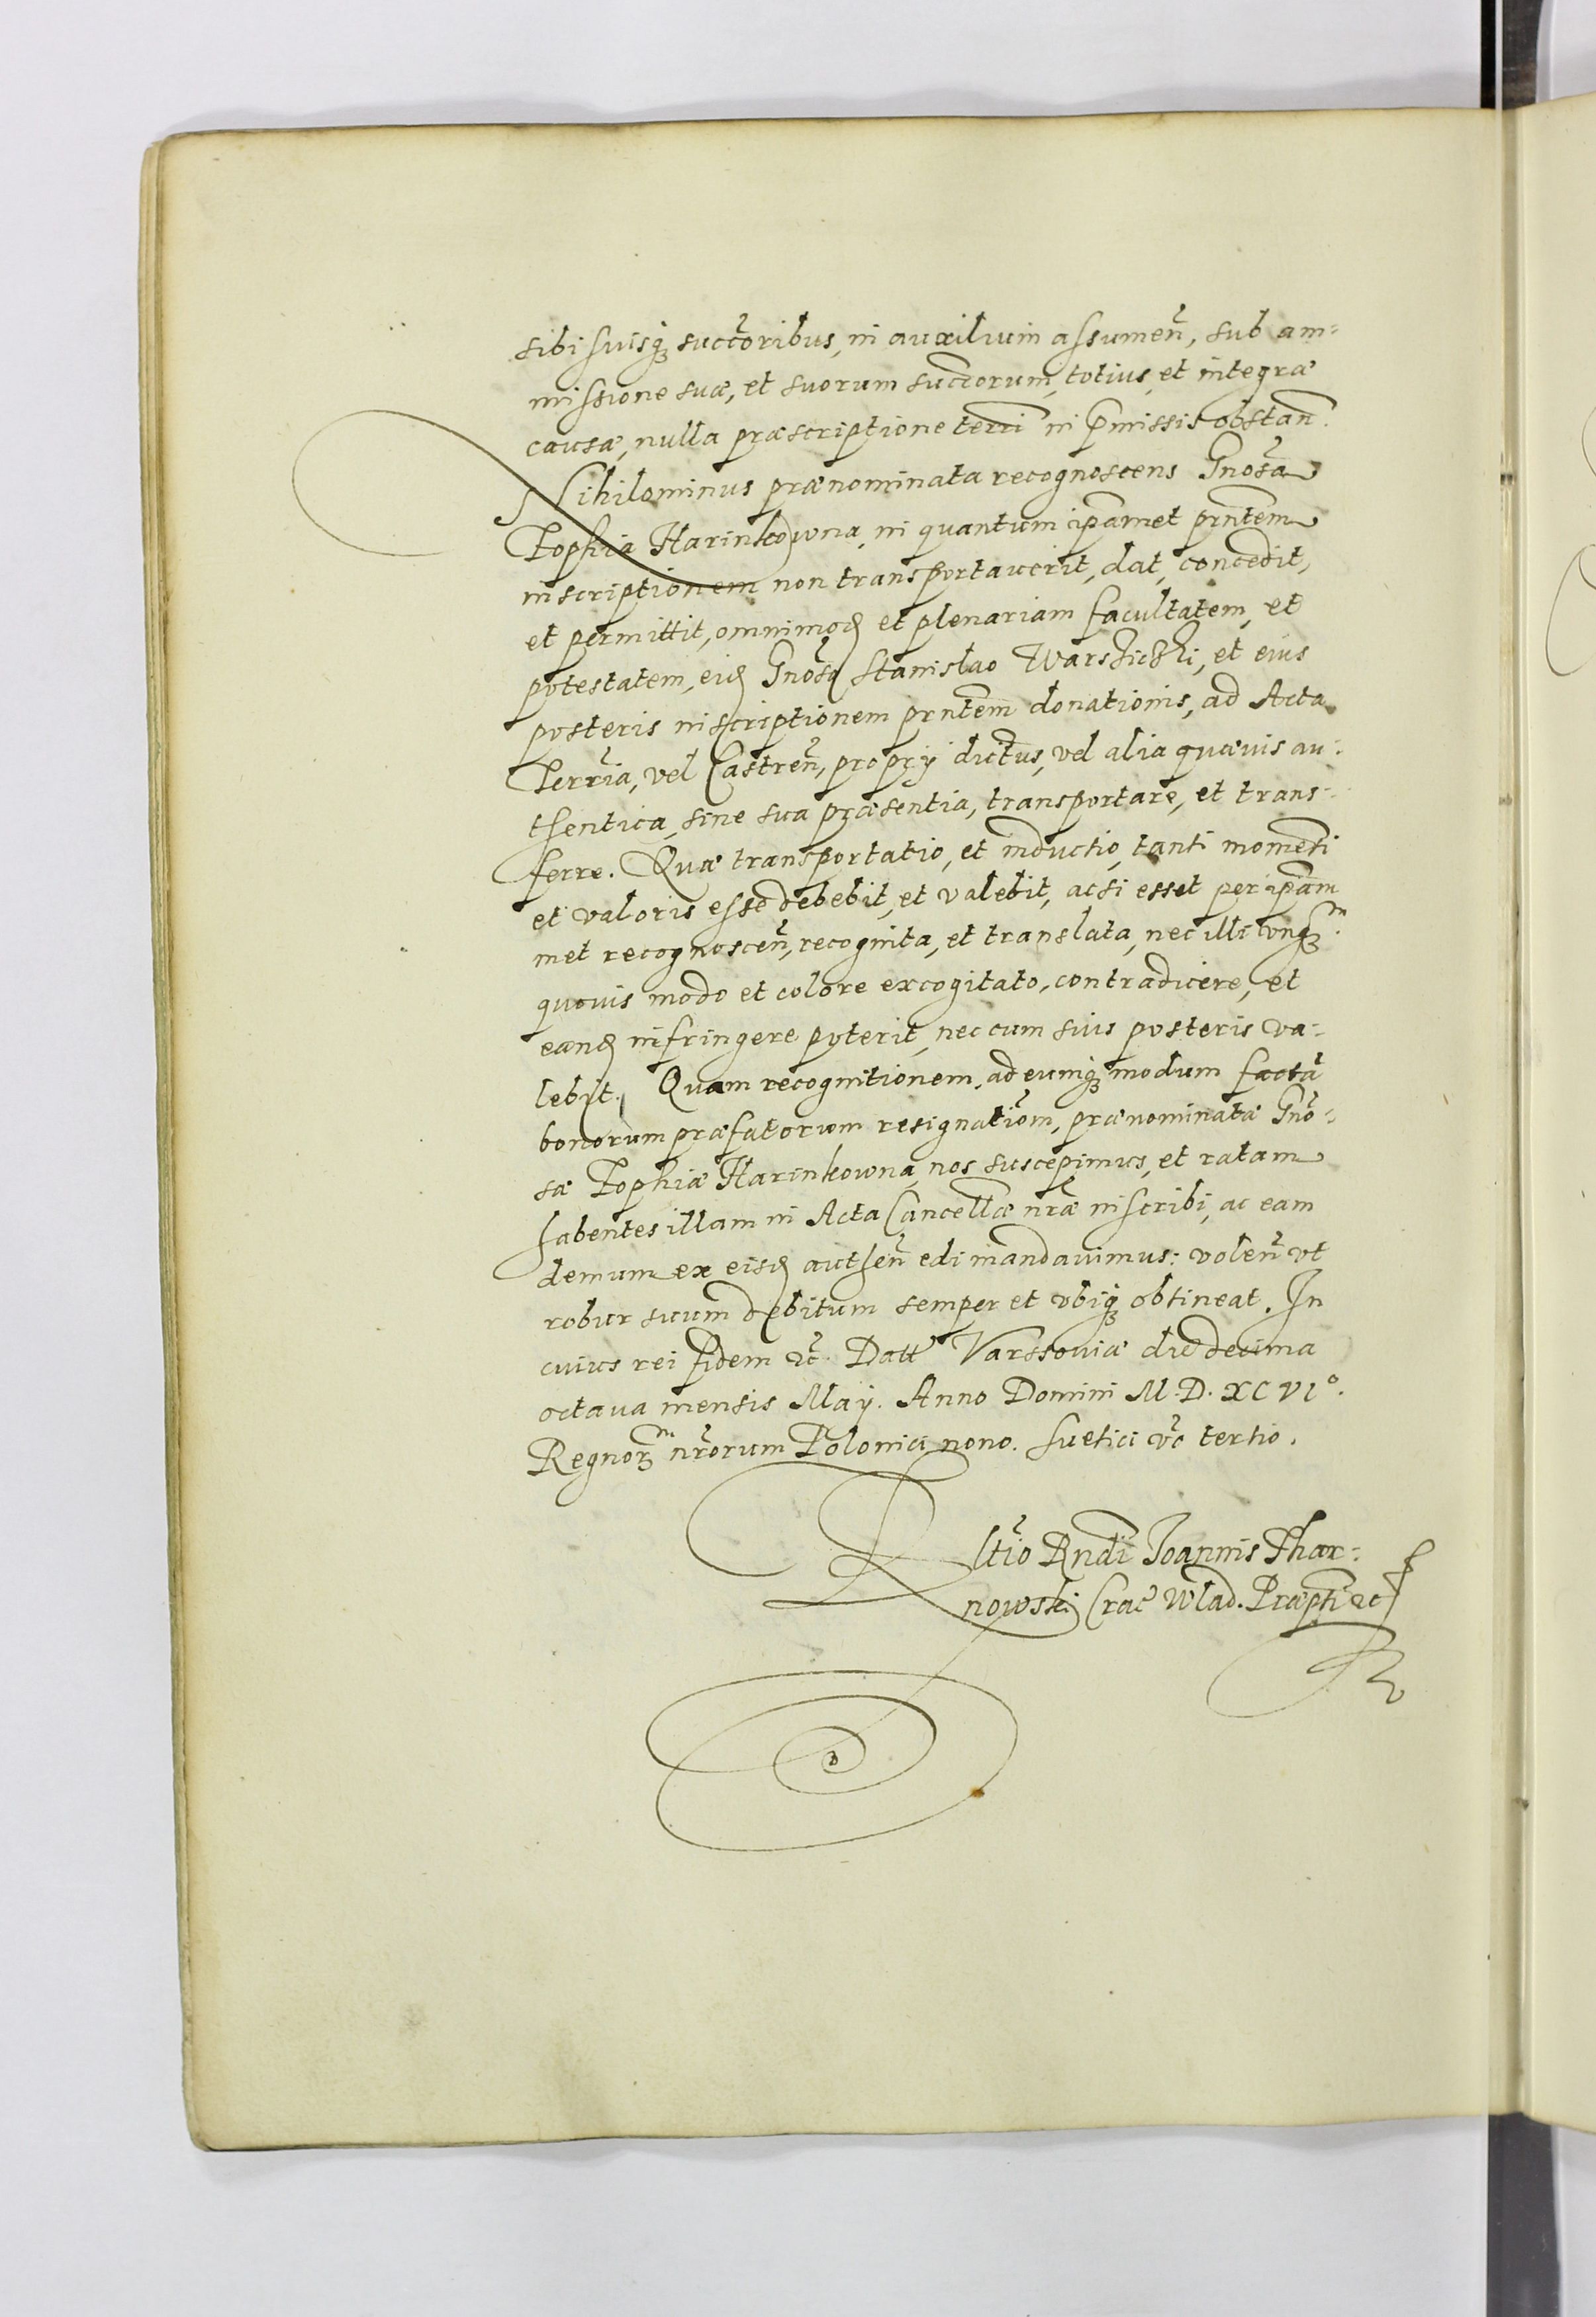 sibi suisq₃ succ̃oribus, in auxilium assumen̄, sub am-
missione suæ, et suorum succ̄orum, totius, et integræ
causæ, nulla præscriptione terr̄i in p̄missis obstan̄.
Nihilominus prænominata recognoscens Gnosã
Zophia Harinkowna, in quantum ip̄amet prn̄tem
inscriptionem non transportaverit, dat, concedit,
et permittit, omnimod et plenariam facultatem, et
potestatem, eid Gnõso Stanislao Warszickhi, et eius
posteris inscriptionem prn̄tem donationis, ad Acta
Terr̃ia, vel Castren̄, proprij dictus, vel alia quævis au-
thentica, sine sua præsentia, transportare, et trans-
ferre. Quæ transportatio, et inductio, tanti momen̄ti
et valoris esse debebit, et valebit, ac si esset per ip̄am
met recognoscen̄, recognita, et translata, nec illi vnq₃ᵐ
quovis modo et colore excogitato, contradicere, et
eand infringere poterit, nec cum suis posteris va-
lebit. Quam recognitionem, ad eumq₃ modum factã
bonorum præfatorum resignatiõm, prænominatæ Gnõ-
sæ Zophiæ Harinkowna, nos suscepimus, et ratam
habentes illam in Acta Cancell̄æ nr̄æ inscribi, ac eam
demum ex eisd authen̄ edi mandavimus: volen̄ vt
robur suum debitum semper et vbiq₃ obtineat. In
cuius rei fidem ꝛc̃. Datt̃ Varssoviæ die decima
octava mensis May. Anno Domini M.D.XCVIº.
Regnor₃ᵐ nr̃orum Poloniæ nono. Suetiæ vc̃ tertio.
Rltĩo Rn̄di Ioannis Thar-
nowski Crac̃ Wlad. Præpti ꝛc